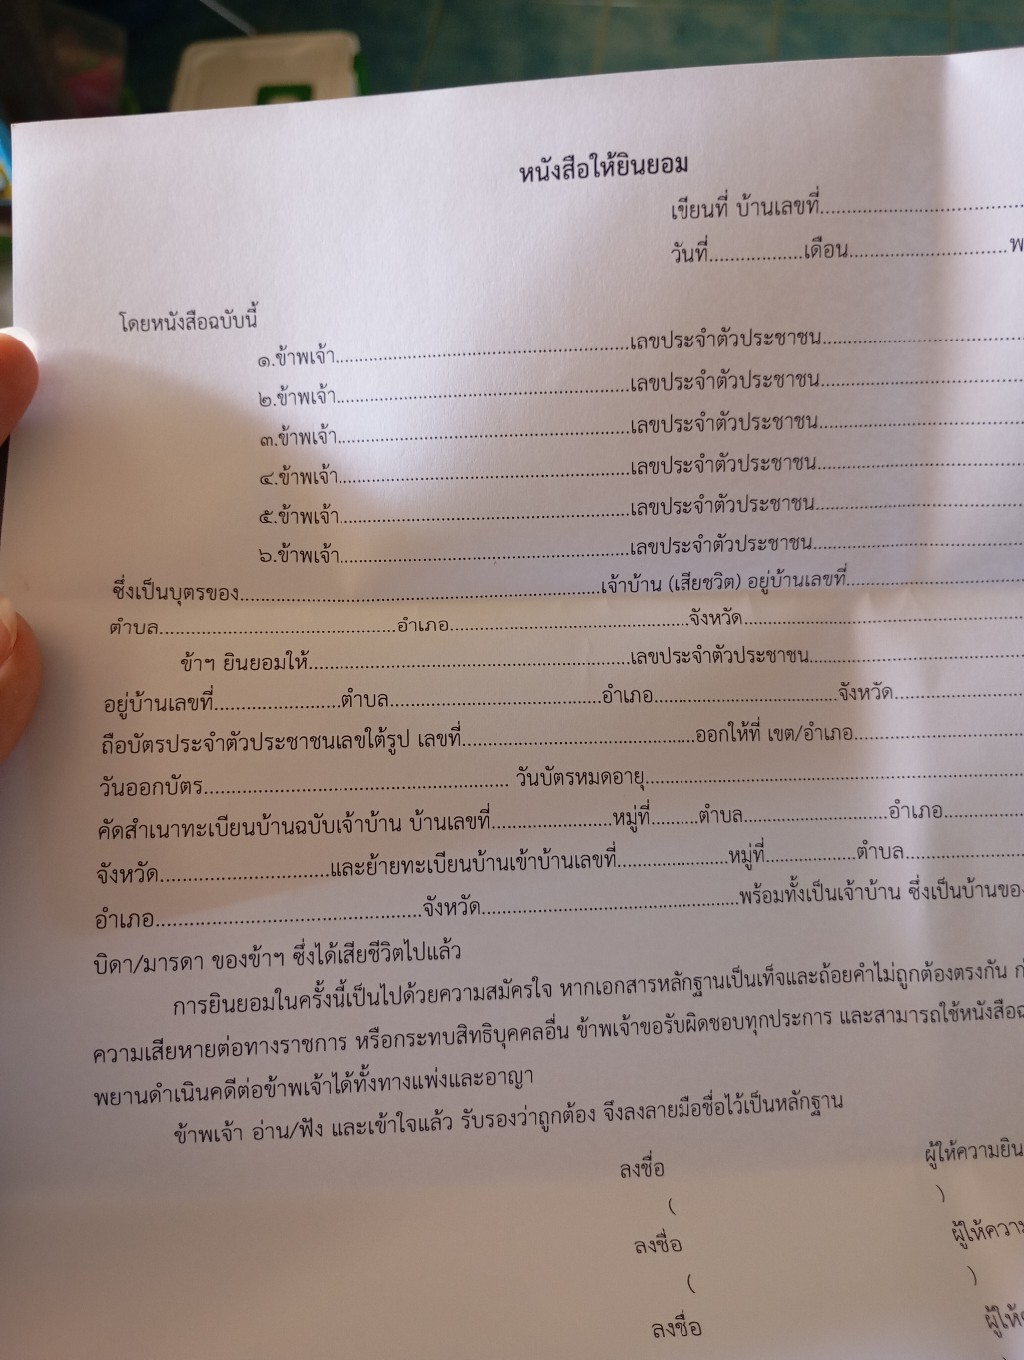 หนังสือให้ยินยอม
เขียนที่ บ้านเลขที่..............................
วันที่..................เดือน..............................พ
โดยหนังสือฉบับนี้
๑.ข้าพเจ้า..........................................................เลขประจำตัวประชาชน........................................
๒.ข้าพเจ้า..........................................................เลขประจำตัวประชาชน........................................
๓.ข้าพเจ้า..........................................................เลขประจำตัวประชาชน........................................
๔.ข้าพเจ้า..........................................................เลขประจำตัวประชาชน........................................
๕.ข้าพเจ้า..........................................................เลขประจำตัวประชาชน........................................
๖.ข้าพเจ้า..........................................................เลขประจำตัวประชาชน........................................
ซึ่งเป็นบุตรของ......................................................................เจ้าบ้าน (เสียชวิต) อยู่บ้านเลขที่..................................
ตำบล..............................................อำเภอ..............................................จังหวัด......................................................
ข้าฯ ยินยอมให้..............................................................เลขประจำตัวประชาชน..........................................
อยู่บ้านเลขที่........................ตำบล........................................อำเภอ...................................จังหวัด.........................
ถือบัตรประจำตัวประชาชนเลขใต้รูป เลขที่............................................ออกให้ที่ เขต/อำเภอ................................
วันออกบัตร.......................................................... วันบัตรหมดอายุ........................................................................
คัดสำเนาทะเบียนบ้านฉบับเจ้าบ้าน บ้านเลขที่.......................หมู่ที่.........ตำบล...........................อำเภอ...............
จังหวัด................................และย้ายทะเบียนบ้านเข้าบ้านเลขที่.....................หมู่ที่.................ตำบล.......................
อำเภอ..................................................จังหวัด................................................พร้อมทั้งเป็นเจ้าบ้าน ซึ่งเป็นบ้านของ
บิดา/มารดา ของข้าฯ ซึ่งได้เสียชีวิตไปแล้ว
การยินยอมในครั้งนี้เป็นไปด้วยความสมัครใจ หากเอกสารหลักฐานเป็นเท็จและถ้อยคำไม่ถูกต้องตรงกัน
ความเสียหายต่อทางราชการ หรือกระทบสิทธิบุคคลอื่น ข้าพเจ้าขอรับผิดชอบทุกประการ และสามารถใช้หนังสือ
พยานดำเนินคดีต่อข้าพเจ้าได้ทั้งทางแพ่งและอาญา
ข้าพเจ้า อ่าน/ฟัง และเข้าใจแล้ว รับรองว่าถูกต้อง จึงลงลายมือชื่อไว้เป็นหลักฐาน
ลงชื่อ ผู้ให้ความยิน
( )
ลงชื่อ ผู้ให้ความ
( )
ลงชื่อ ผู้ให้